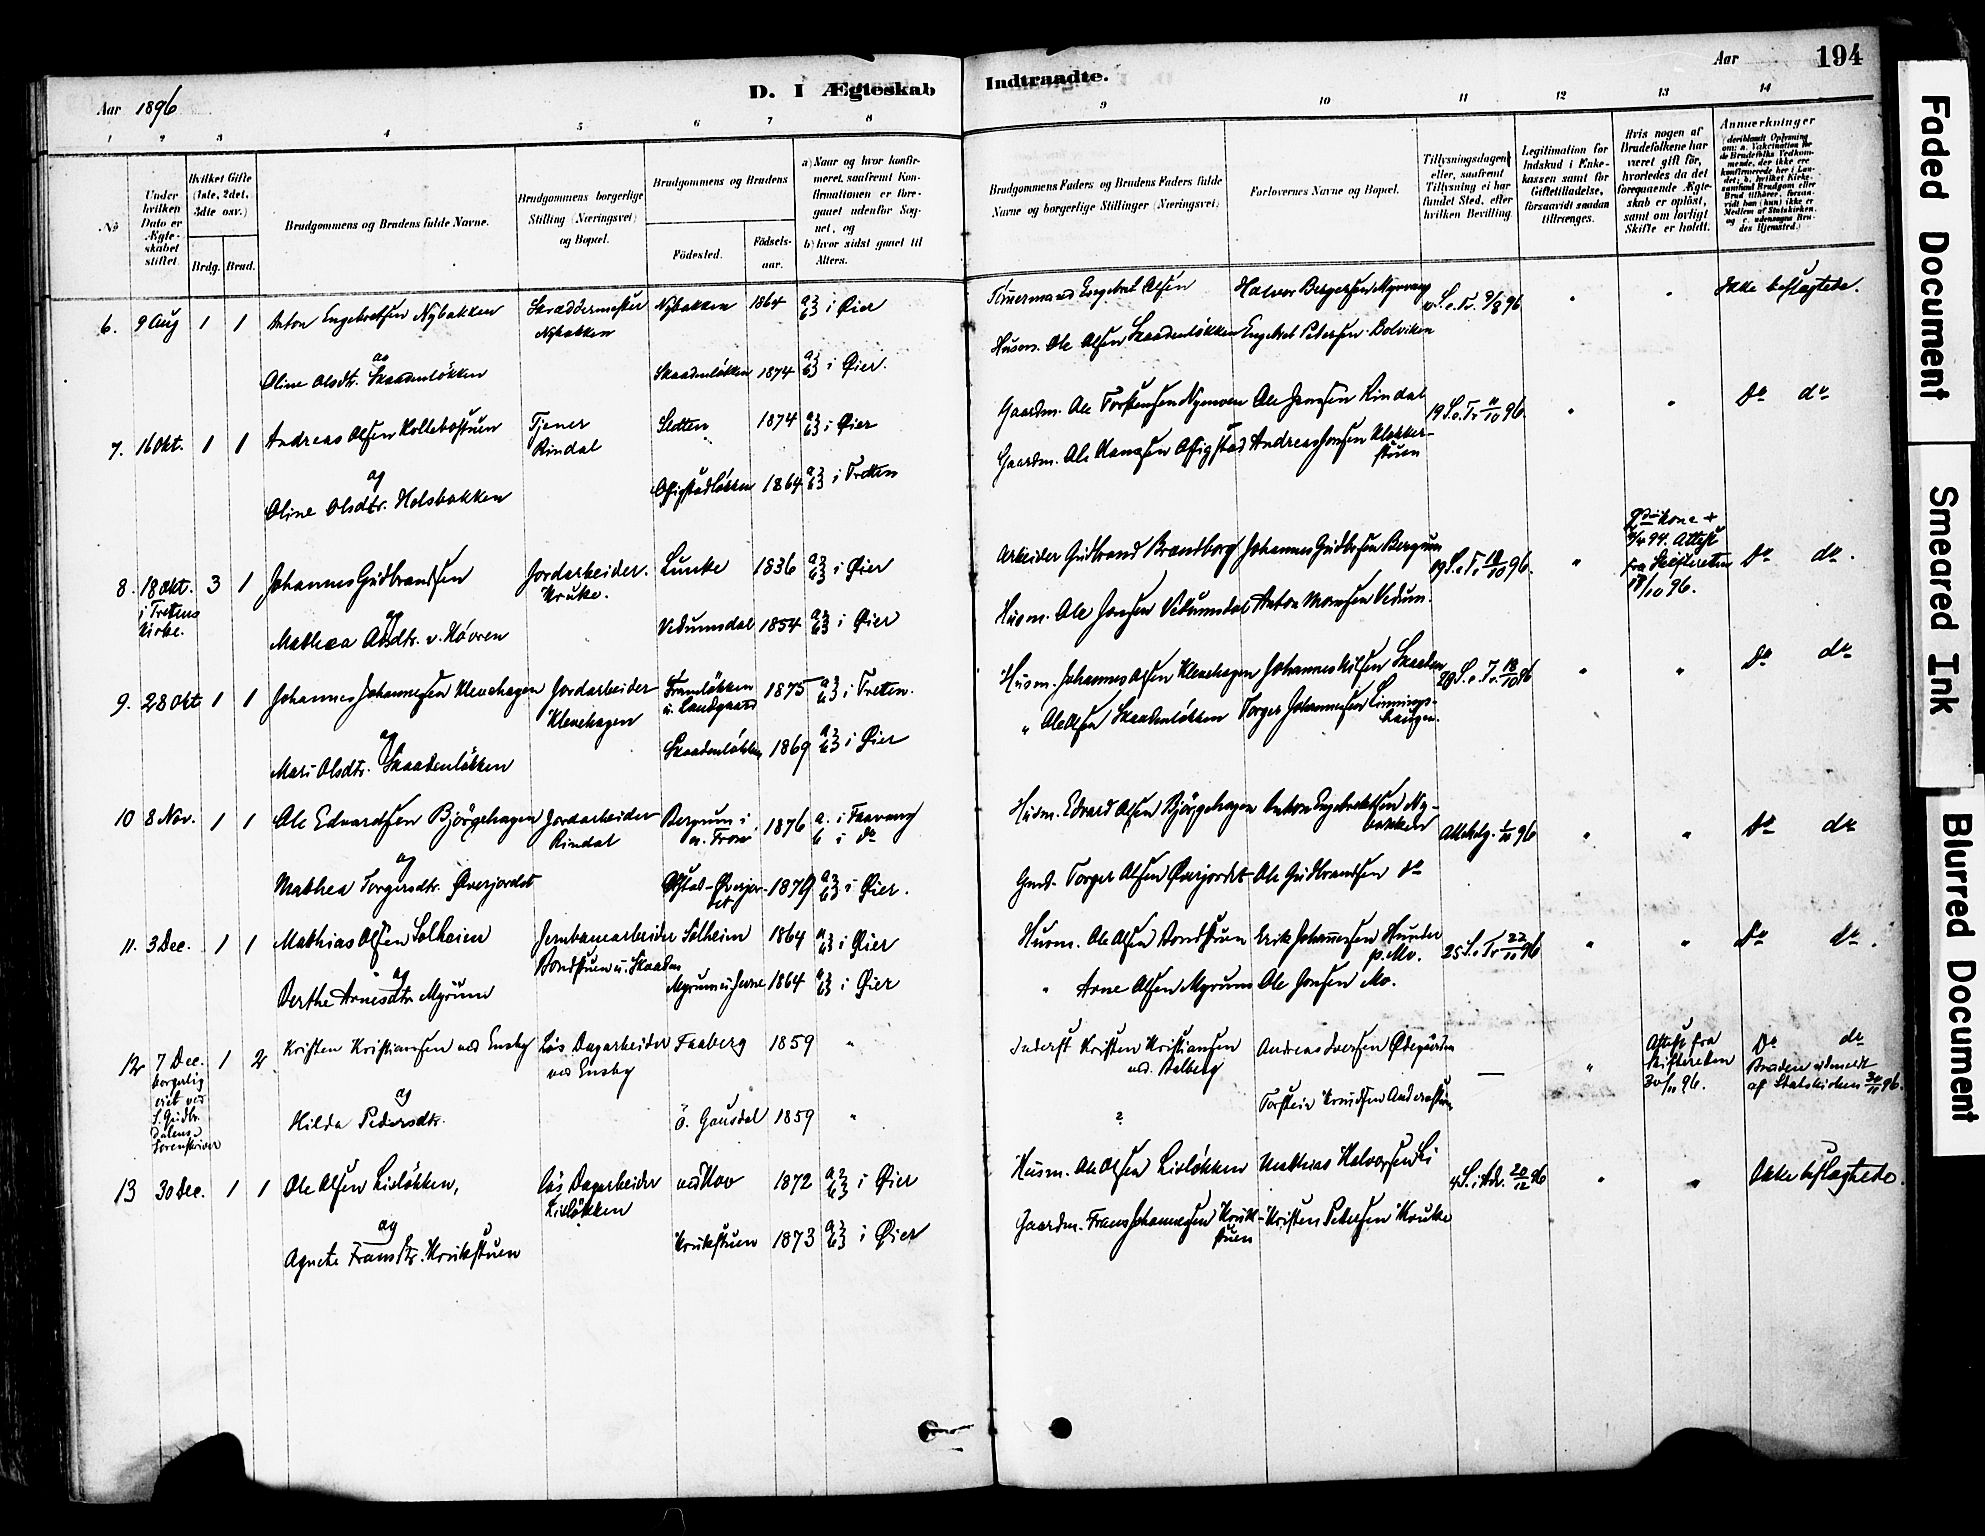 Aar 1896
D. I Ægteskab Indtraadte.
Aar
194
1 2 3 4 5 6 7 8 9 10 11 12 13 14
No
Under hvilken Dato er Ægteskabet stiftet.
Hvilket Gifte (1ste, 2det, 3die osv.)
Brdg. Brud.
Brudgommens og Brudens fulde Navne.
Brudgommens borgerlige Stilling (Næringsvei) og Bopæl.
Brudgommens og Brudens
Fødested.
Fødselsaar.
a) Naar og hvor konfirmeret, saafremt Konfirmationen er foregaaet udenfor Sognet, og
b) hvor sidst gaaet til Alters.
Brudgommens Faders og Brudens Faders fulde Navne og borgerlige Stillinger (Næringsvei)
Forlovernes Navne og Bopæl.
Tillysningsdagen eller, saafremt Tillysning ei har fundet Sted, efter hvilken Bevilling
Legitimation for Indskud i Enkekassen samt for Giftetilladelse, forsaavidt saadan tiltrænges.
Hvis nogen af Brudefolkene har været gift før, hvorledes da det foregaaende Ægteskab er opløst, samt om lovligt Skifte er holdt.
Anmærkninger
6. 9 Aug 1 1 Anton Engebretsen Nybakken Skræddermester Nybakken Nybakken 1864 a b i Øier Engebret Olsen Halvor Bergersen 9/8 96 " " Ikke beslægtede.
og
Oline Olsdtr. Skaadenløkken Skaadenløkken 1874 a b i Øier. Husm. Ole Olsen Skaadenløkken Engebret Petersen Bolviken
7. 16 Okt. 1 1 Andreas Olsen Kollebøstuen Tjener Rindal Slotten 1874 a b i Øier Gaardm. Ole Torstensen Nymoen Ole Jensen Rindal 19 S. e. Tr. 11/10 96. " " Do do
og
Oline Olsdtr. Holsbakken 1864 a b i Tretten Gaardm. Ole Hansen Andreas Jonsen Klokkerstuen
8. 18 Okt. i Tretens Kirke. 3 1 Johannes Gudbrandsen Jordarbeider. Kruke. Lunke 1836 a b i Øier Arbeider Gudbrand Brandborg Johannes Gudbrsen Bergum 19 S. e. Tr. 11/10 96. " kone + 94. Attest fra Skifteretten 18/10 96. Do do.
og
Mathea Olsdtr. v. Høvren Vedumsdal 1854 a b i Øier Husm. Ole Jonsen Vedumsdal Anton Monsen Vedum.
9. 28 Okt 1 1 Johannes Johannesen Klevehagen Jordarbeider Klevehagen Framløkken u. Landgaard 1875 a b i Treten. Husm. Johannes Olsen Klevehagen Johannes Nilsen Skaaden 20 S. e. Tr. 18/10 96 " " Do do
og
Mari Olsdtr. Skaadenløkken Skaadenløkken 1869 a b i Øier " Ole Olsen Skaadenløkken Torger Johannesen Linningshaugen.
10 8 Nov. 1 1 Ole Edvardsen Bjørgehagen Jordarbeider Rindal Bergum i n. Fron 1876 a. i Faavang b i do Husm. Edvard Olsen Bjørgehagen Anton Engebretsen Nybakken Allehelg. 1/11 96 " " Do do
og
Mathea Torgersdtr. Øverjordet 1879 a b i Øier. Gmd. Torger Olsen Øverjordet Ole Gudbrandsen do
11. 3 Dec. 1 1 Mathias Olsen Solheim Jernbanearbeider Bondstuen u. Skaaden Solheim 1864 a b i Øier Husm. Ole Olsen Bondstuen Erik Johannesen Hunder p. Mo. 25 S. e. Tr 22/11 96 " " Do do.
og
Berthe Arnesdtr. Myrum Myrum u. Jevne 1864 a b i Øier " Arne Olsen Myrum Ole Jonsen Mo.
12 7 Dec. borgerlig viet ved S. Gudbr. dalens Sorenskriver 1 2 Kristen Kristiansen ved Ensby Løs Dagarbeider ved Ensby Faaberg 1859 " Inderst Kristen Kristiansen ved. Aalberg Andreas Iversen Ødegaarden — " Attest fra Skifteretten 30/11 96. Do do Bruden udmeldt af Statskirken 30/11 96.
og
Hilda Pedersdtr. Ö. Gausdal 1859 " ? Torstein Knudsen
13 30 Dec. 1 1 Ole Olsen Lisløkken, Løs Dagarbeider Lisløkken ved Nov 1872 a b i Øier Husm. Ole Olsen Lisløkken Mathias Halvorsen Li 4 S. i Adv. 20/12 96 " " Ikke beslægtede.
og
Agnete Fransdtr. Krukstuen Krukstuen 1873 a b i Øier Gaardm. Frans Johannesen Krukstuen Kristen Petersen Kruke
Faded Document
Smeared Ink
Blurred Document